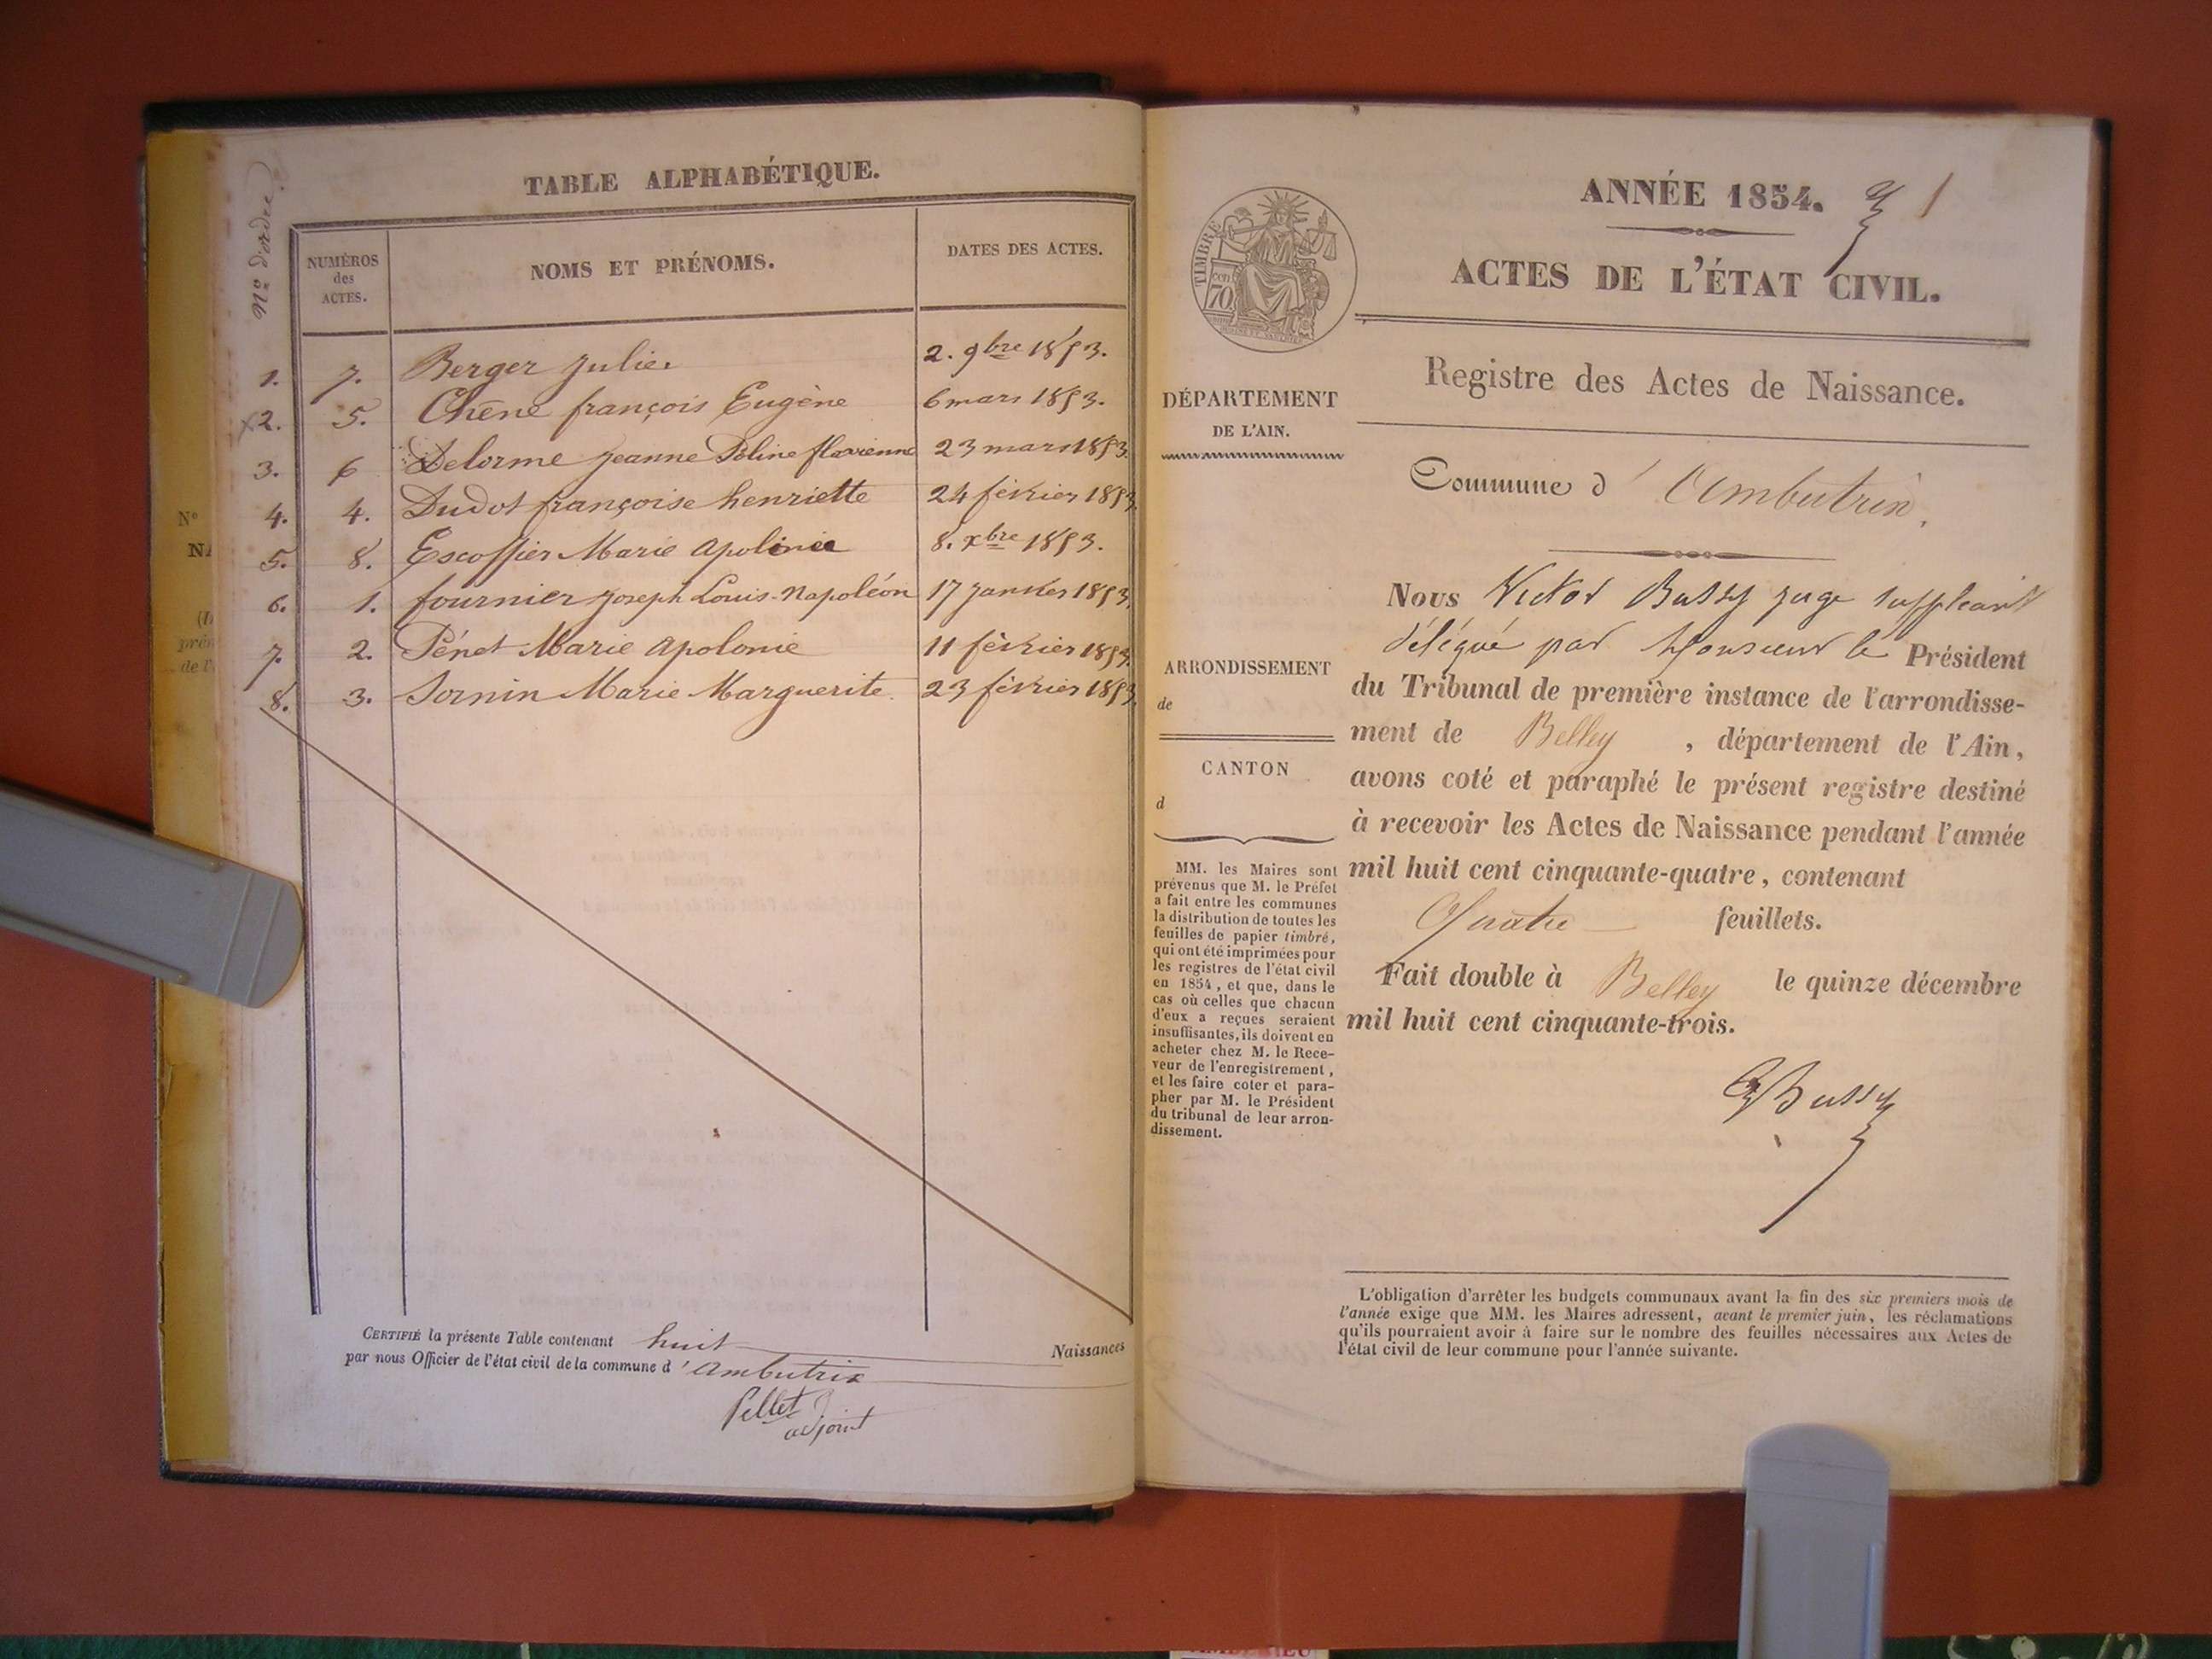 TABLE ALPHABÉTIQUE.
Nos d'ordre.
NUMÉROS des ACTES.
NOMS ET PRÉNOMS.
DATES DES ACTES.
1. 7. Berger Julie. 2. 9bre 1853.
2. 5. Chêne françois Eugène 6 mars 1853.
3. 6 Delorme Jeanne Poline flavienne 23 mars 1853.
4. 4. Dudot françoise henriette 24 février 1853.
5. 8. Escoffier Marie Apolinie 8. xbre 1853.
6. 1. fournier Joseph Louis-Napoléon 17 Janvier 1853.
7. 2. Pénet Marie Apolonie 11 février 1853.
8. 3. Sornin Marie Marguerite. 23 février 1853.
CERTIFIÉ la présente Table contenant huit Naissances
par nous Officier de l'état civil de la commune d'Ambutrix
Pellet
adjoint
ANNÉE 1854. 1
ACTES DE L'ÉTAT CIVIL.
TIMBRE
70
DÉPARTEMENT
DE L'AIN.
ARRONDISSEMENT
de
CANTON
d
MM. les Maires sont
prévenus que M. le Préfet
a fait entre les communes
la distribution de toutes les
feuilles de papier timbré,
qui ont été imprimées pour
les registres de l'état civil
en 1854, et que, dans le
cas où celles que chacun
d'eux a reçues seraient
insuffisantes, ils doivent en
acheter chez M. le Rece-
veur de l'enregistrement,
et les faire coter et para-
pher par M. le Président
du tribunal de leur arron-
dissement.
Registre des Actes de Naissance.
Commune d'Ambutrix.
Nous Victor Bussy juge suppléant
délégué par Monsieur le Président
du Tribunal de première instance de l'arrondisse-
ment de Belley, département de l'Ain,
avons coté et paraphé le présent registre destiné
à recevoir les Actes de Naissance pendant l'année
mil huit cent cinquante-quatre, contenant
Quatre feuillets.
Fait double à Belley le quinze décembre
mil huit cent cinquante-trois.
Bussy
L'obligation d'arrêter les budgets communaux avant la fin des six premiers mois de
l'année exige que MM. les Maires adressent, avant le premier juin, les réclamations
qu'ils pourraient avoir à faire sur le nombre des feuilles nécessaires aux Actes de
l'état civil de leur commune pour l'année suivante.